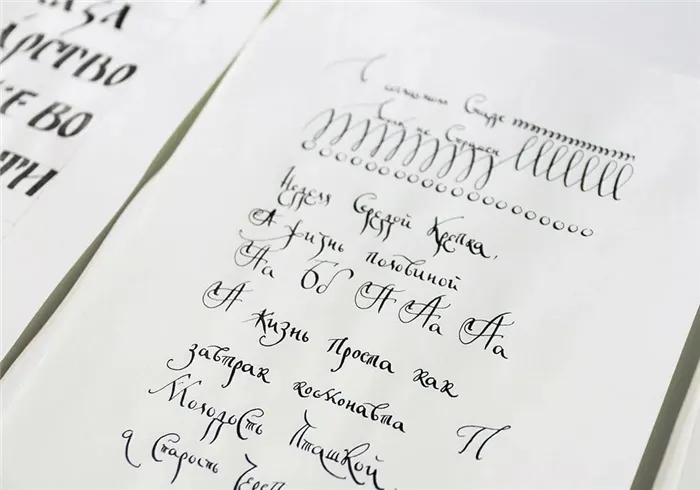 ЗА
АРСТВО
ЖЕ ВО
ТИ
Неделя Середой Крепка,
А жизнь половиной
Аа Бб А Аа Аа
А жизнь проста как
завтрак космонавта П
Молодость Пташкой,
а Старость Череп